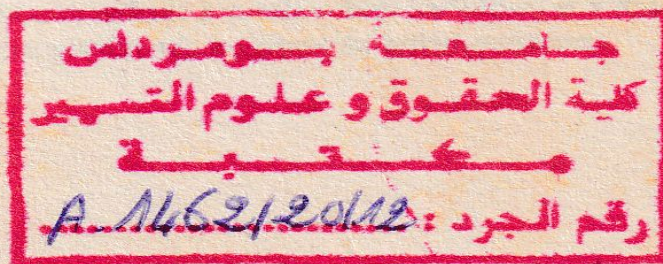 جامعة بومرداس
كلية الحقوق و علوم التسيير
مكتبة
رقم الجرد : A.1462/2012